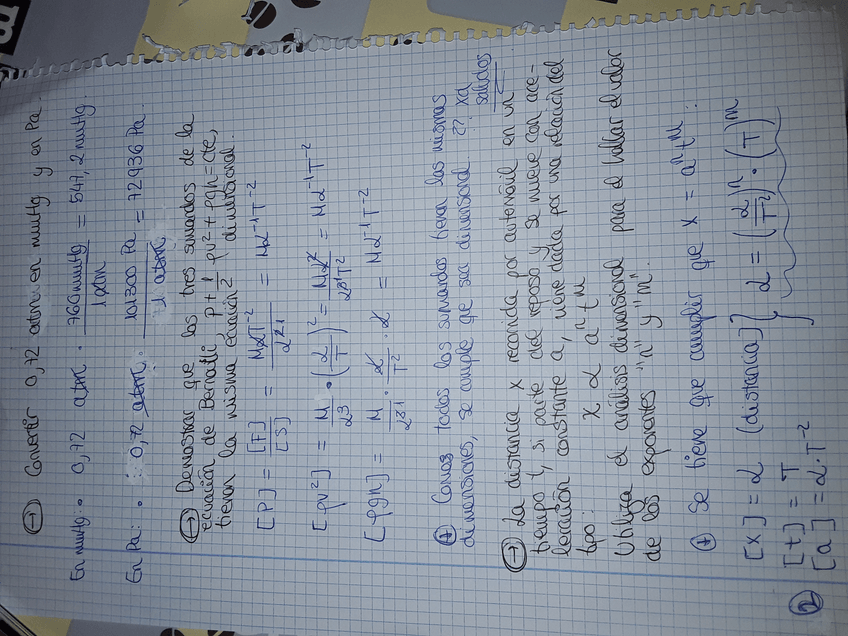 → Convertir 0,72 atm en mmHg y en Pa.
En mmHg: · 0,72 atm · 760mmHg / 1atm = 547,2 mmHg.
En Pa: · 0,72 atm · 101300 Pa / 1 atm = 72936 Pa.
→ Demostrar que los tres sumandos de la
ecuación de Bernoulli p + 1/2 ρv² + ρgh = cte,
tienen la misma ecuación dimensional.
[P] = [F] / [S] = MLT⁻² / L² = ML⁻¹T⁻²
[ρv²] = M / L³ · (L/T)² = ML² / L³T² = ML⁻¹T⁻²
[ρgh] = M / L³ · L / T² · L = ML⁻¹T⁻²
+ Como todos los sumandos tienen las mismas
dimensiones, se cumple que sea dimensional ??
salidos
→ La distancia x recorrida por automóvil en un
tiempo t, si parte del reposo y se mueve con ace-
leración constante a, viene dada por una relación del
tipo: x α aⁿ tᵐ
Utiliza el análisis dimensional para el hallar el valor
de los exponentes "n" y "m".
+ Se tiene que cumplir que x = aⁿ tᵐ :
[x] = L (distancia) } L = (L/T²)ⁿ · (T)ᵐ
[t] = T
[a] = L·T⁻²
2